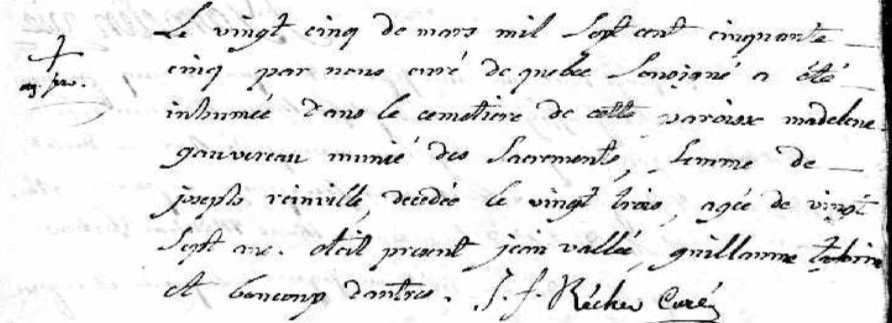 Le vingt cinq de mars mil sept cent cinquante
cinq par nous curé de quebec soussigné a été
inhumée dans le cemetiere de cette paroisse madelene
gauvereau munié des sacrements, femme de
joseph reinville, decedée le vingt trois, agée de vingt
sept ans. etoit present jean vallée, guillaume
et baucoup dautres. J. f. Récher Curé